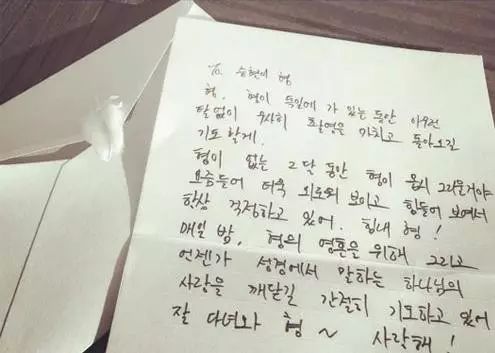 To. 승현이 형
형, 형이 독일에 가 있는 동안 아무런
탈 없이 무사히 촬영을 마치고 돌아오길
기도할게.
형이 없는 2달 동안 형이 몹시 그리울거야
요즘들어 더욱 외로워 보이고 힘들어 보여서
항상 걱정하고 있어. 힘내 형!
매일 밤, 형의 영혼을 위해 그리고
언젠가 성경에서 말하는 하나님의
사랑을 깨닫길 간절히 기도하고 있어
잘 다녀와 형~ 사랑해!